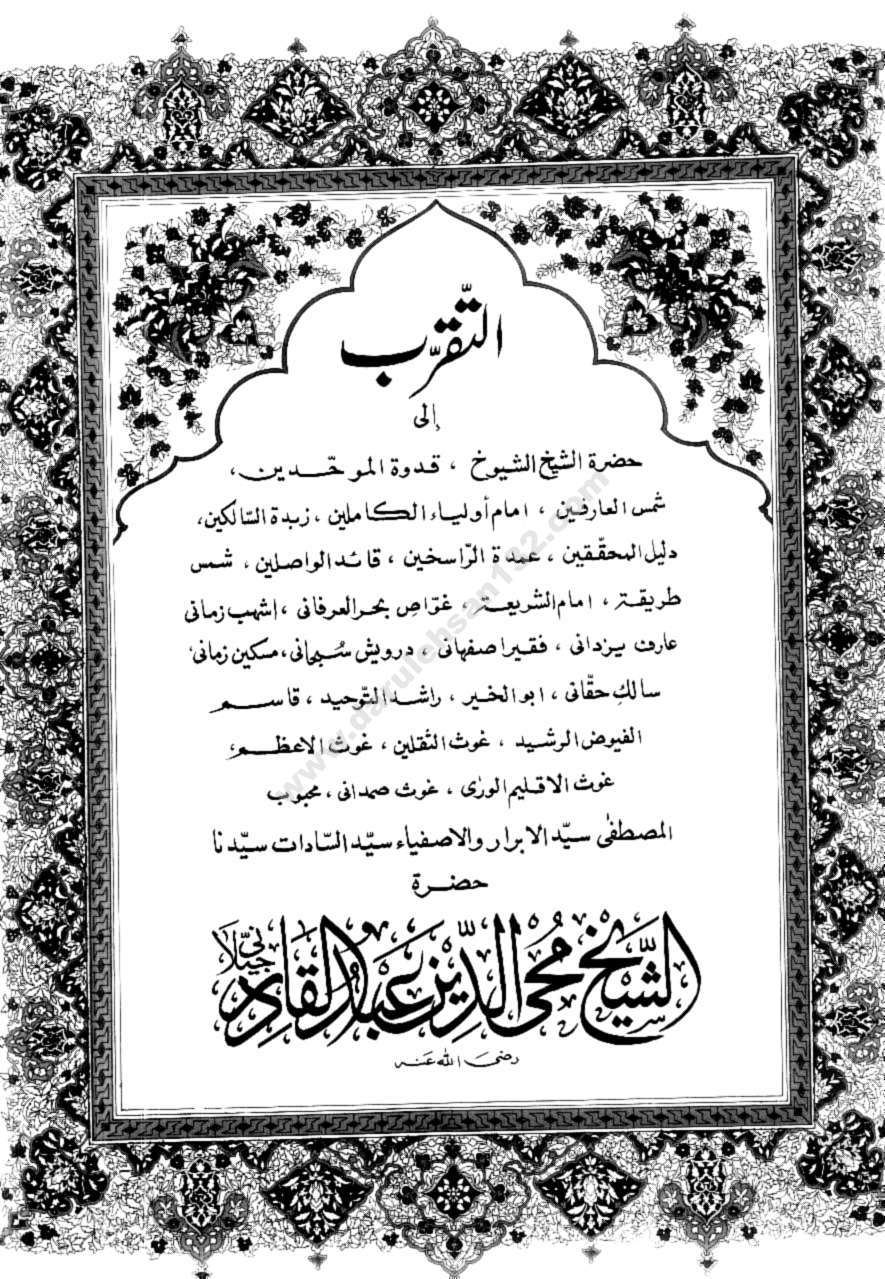 التقرّب
إلى
حضرة الشيخ الشيوخ ، قدوة الموحّدين،
شمس العارفين ، امام أولياء الكاملين ، زبدة السّالكين،
دليل المحقّقين ، عمدة الرّاسخين ، قائد الواصلين ، شمس
طريقتہ، امام الشريعتہ، غوّاص بحر العرفانى ، اشهب زمانى
عارف يزدانى ، فقير اصفهانى ، درويش سُبحانى، مسكين زمانى،
سالكِ حقّانى ، ابو الخير ، راشد التّوحيد ، قاسم
الفيوض الرشيد ، غوث الثّقلين ، غوث الاعظم،
غوث الاقليم الورٰى ، غوث صمدانى ، محبوب
المصطفٰى سيّد الابرار والاصفياء سيّد السّادات سيّدنا
حضرة
الشّيخ مُحى الدِّين عَبدُ القادِر جيلانى
رضى الله عَنه
www.darulehsan132.com